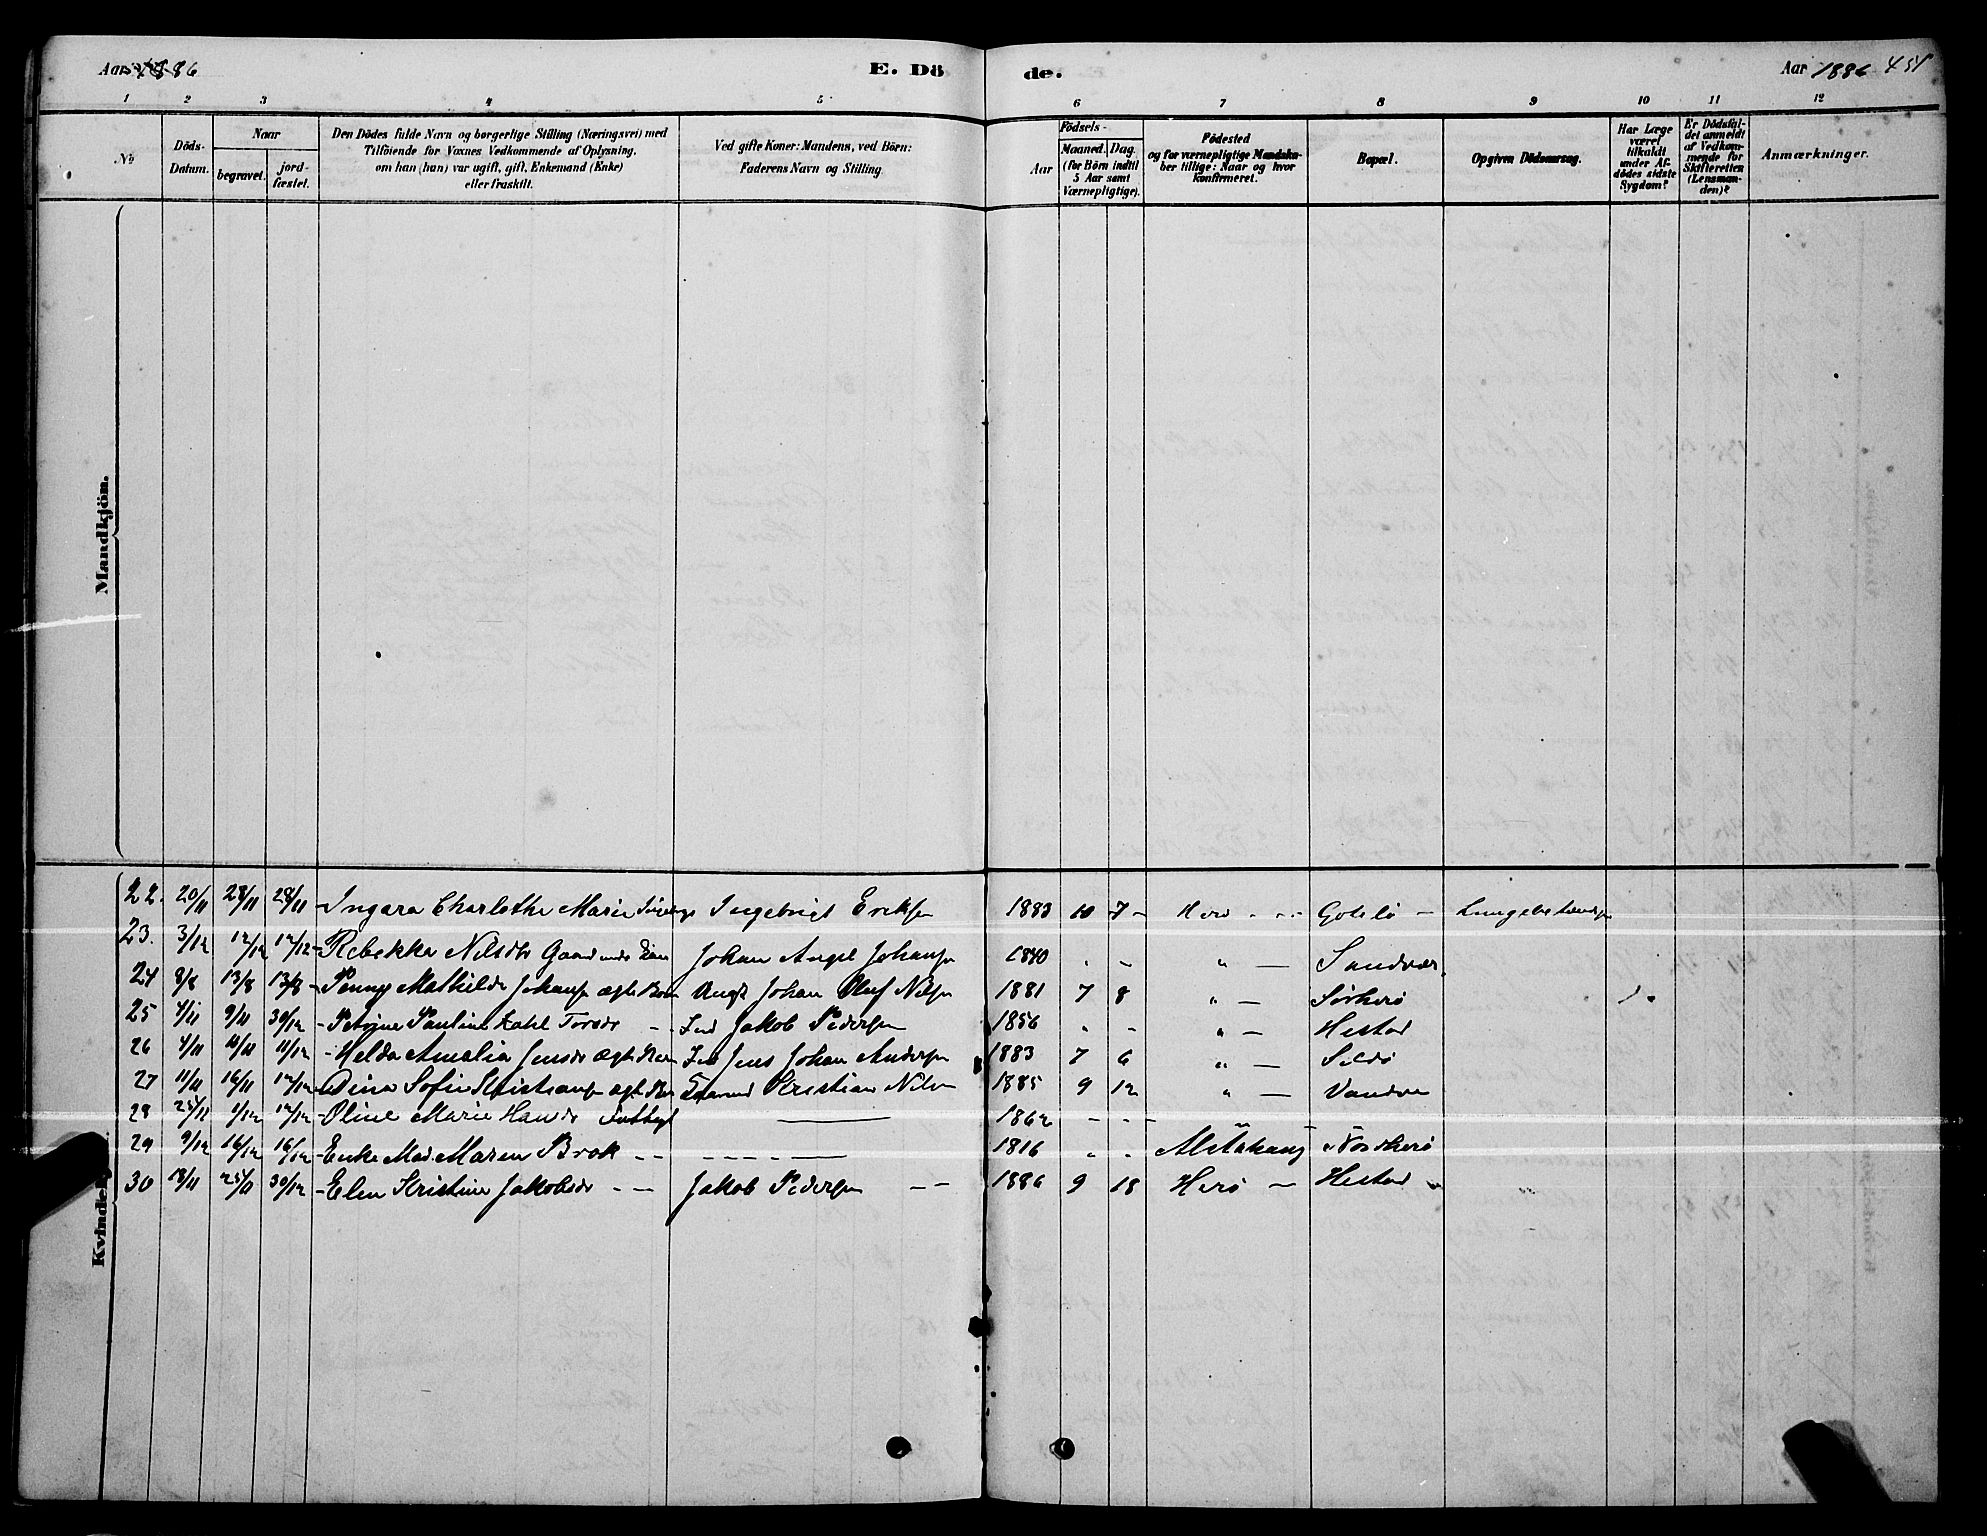 Aar 1886
E. Dö
de.
Aar 1886 451
1 2 3 4 5 6 7 8 9 10 11 12
No
Döds-
Datum.
Naar
begravet.
jord-
fæstet.
Den Dödes fulde Navn og borgerlige Stilling (Næringsvei) med
Tilföiende for Voxnes Vedkommende af Oplysning,
om han (hun) var ugift, gift, Enkemand (Enke)
eller fraskilt.
Ved gifte Koner: Mandens, ved Börn:
Faderens Navn og Stilling.
Födsels-
Aar
Maaned. Dag.
(for Börn indtil
5 Aar samt
Værnepligtige).
Födested
og for værnepligtige Mandska-
ber tillige: Naar og hvor
konfirmeret.
Bopæl.
Opgiven Dödsaarsag.
Har Læge
været
tilkaldt
under Af-
dödes sidste
Sygdom?
Er Dödsfal-
det anmeldt
af Vedkom-
mende for
Skifteretten
(Lensman-
den)?
Anmærkninger.
Mandkjön.
Kvindekj
22. 20/11 28/11 28/11 Ingara Charlothe Marie Ingebrigt Eriksen 1883 10 7 Herö Lungebetændelse
23. 3/12 12/12 12/12 Rebekka Nilsdtr Johan Angel Johansen 1840 " Sandvær
24 8/8 13/8 13/8 Mathilde Johansen ægte Barn Johan Oluf Nilsen 1881 7 8 " Sörherö 1.
25 4/11 9/11 30/12 Pauline Torsdr Ind Jakob Pedersen 1856 " Hestad
26 4/11 10/11 11/12 Helda Amalia Jensdr ægte Barn Ind Jens Johan Andersen 1883 7 6 "
27 11/11 16/11 12/12 Dina Sofie Kristiansen ægte Barn Kristian Nilsen 1885 9 12 "
28 25/11 1/12 12/12 Oline Marie Hansdr 1862
29 9/12 16/12 16/12 Enke Mad. Maren Brok 1816 Alstahaug Nordherö
30 18/11 25/11 30/12 Elen Kristine Jakobsdr Jakob Pedersen 1886 9 18 Herö Hestad